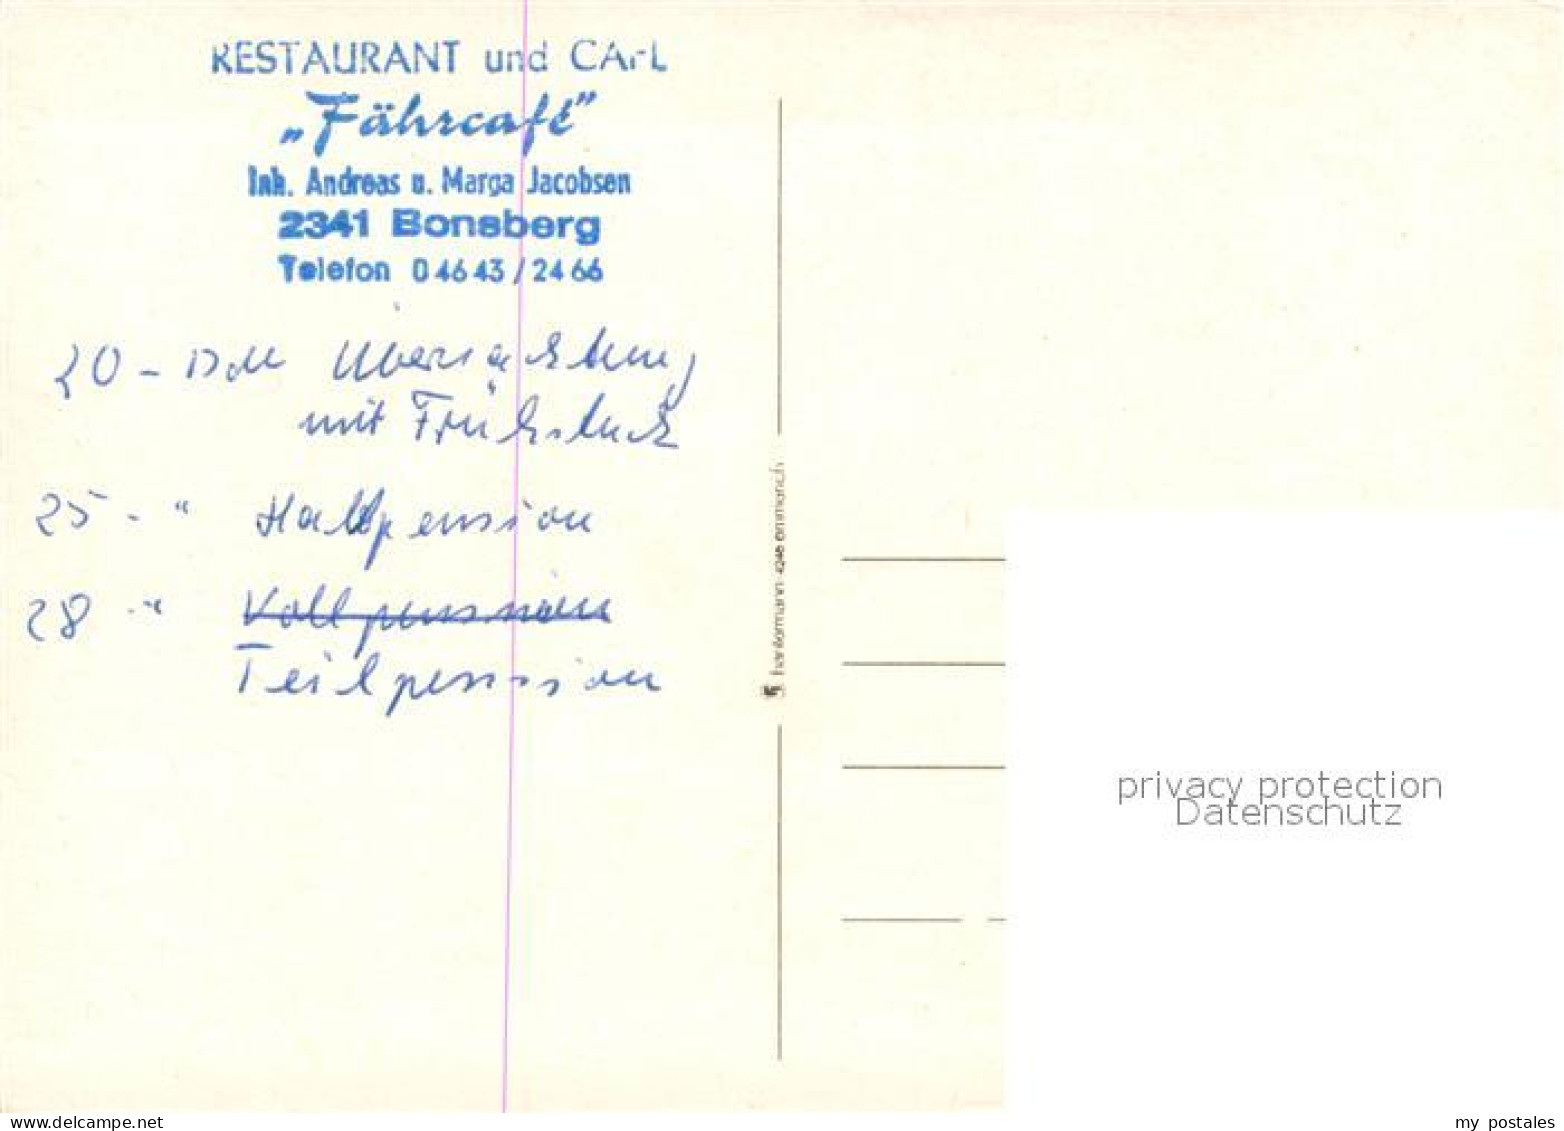 RESTAURANT und CAFE
„Fährcafé"
Inh. Andreas u. Marga Jacobsen
2341 Bonsberg
Telefon 04643/2466
20 - DM Übernachtung
mit Frühstück
25 - " Halbpension
28 - " Vollpension
Teilpension
hantermann 4240 emmerich
privacy protection
Datenschutz
www.delcampe.net
my_postales